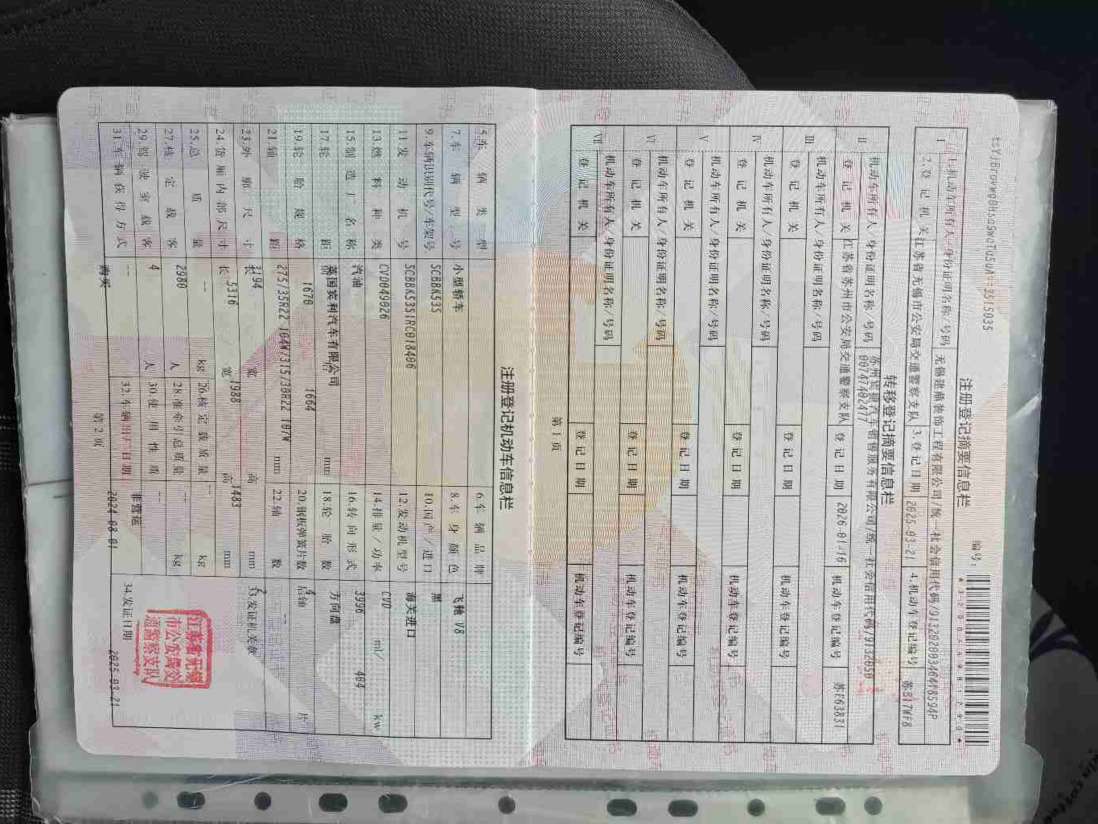 编号:
注册登记摘要信息栏
I
1.机动车所有人/身份证明名称/号码 无锡建航装饰工程有限公司/统一社会信用代码/
2.登记机关 江苏省无锡市公安局交通警察支队 3.登记日期 2025-03-21 4.机动车登记编号
转移登记摘要信息栏
II
机动车所有人/身份证明名称/号码
汽车销售服务有限公司/统一社会信用代码/
登记机关 江苏省苏州市公安局交通警察支队 登记日期 2026-01-16 机动车登记编号 苏E63B31
III
机动车所有人/身份证明名称/号码
登记机关 登记日期 机动车登记编号
IV
机动车所有人/身份证明名称/号码
登记机关 登记日期 机动车登记编号
V
机动车所有人/身份证明名称/号码
登记机关 登记日期 机动车登记编号
VI
机动车所有人/身份证明名称/号码
登记机关 登记日期 机动车登记编号
VII
机动车所有人/身份证明名称/号码
登记机关 登记日期 机动车登记编号
第1页
注册登记机动车信息栏
5.车辆类型 小型轿车 6.车辆品牌 飞驰 V8
7.车辆型号 SCBBK53S 8.车身颜色 黑
9.车辆识别代号/车架号 10.国产/进口 海关进口
11.发动机号 CVD049026 12.发动机型号 CVD
13.燃料种类 汽油 14.排量/功率 3996 ml/ 404 kw
15.制造厂名称 英国宾利汽车有限公司 16.转向形式 方向盘
17.轮距 前 1670 后 1664 mm 18.轮胎数 4
19.轮胎规格 275/35R22 104W/315/30R22 107W 20.钢板弹簧片数 后轴 -- 片
21.轴距 3194 mm 22.轴数 2
23.外廓尺寸 长 5316 宽 1988 高 1483 mm 33.发证机关章
24.货厢内部尺寸 长 宽 高 mm
25.总质量 2980 kg 26.核定载质量 -- kg
27.核定载客 4 人 28.准牵引总质量 -- kg
29.驾驶室载客 -- 人 30.使用性质 非营运
31.车辆获得方式 购买 32.车辆出厂日期 2024-08-01 34.发证日期 2025-03-21
江苏省无锡
市公安局交
通警察支队
第2页